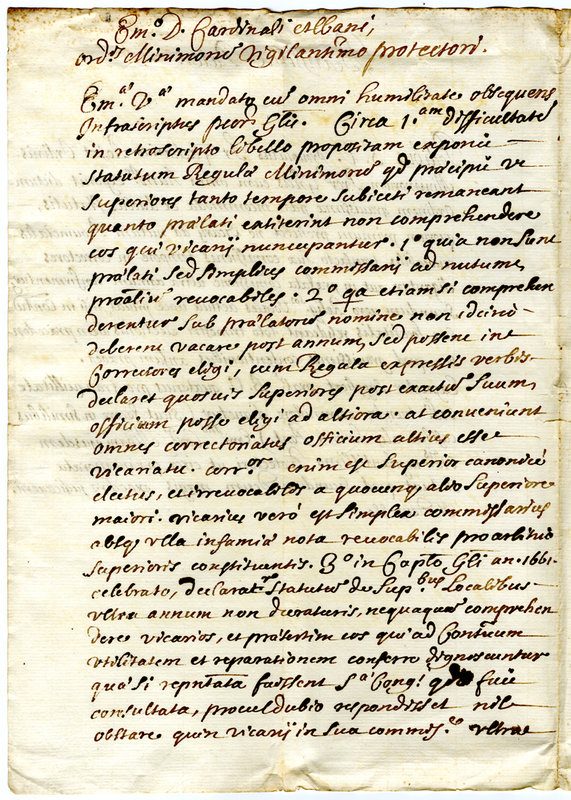 Em.º D. Cardinali Albani,
ord.s Minimorũ vigilantimo protectori.
Em.ª V.ª mandato cũ omni humilitate obsequens
Infrascriptus procr Glis. Circa 1.am difficultatẽ
in retroscripto libello propositam exponit
statutum Regulæ Minimorũ qd præcipit ut
Superiores tanto tempore subiecti remaneant
quanto prælati extiterint non comprehendere
eos qui vicarij nuncupantur. 1.º quia non sunt
prælati sed simplices commissarij ad nutum
revocabiles. 2.º qa etiamsi comprehen
derentur sub prælatorũ nomine non idcirco
deberent vacare post annum, sed possent in
Correctores eligi, cum Regula expressis verbis
declaret quosvis superiores post exactũ suum
officium posse eligi ad altiora. at conveniunt
omnes correctoriatus officium altius esse
vicariatu. corr.or enim est superior canonicè
electus, et irrevocabilis a quocunq alio superiore
maiori. vicarius verò est simplex commissarius
absq ulla infamiæ nota revocabilis pro arbitrio
superioris constituentis. 3.º in Capto Gli an. 1661.
celebrato, declarat.r statutũ de sup.bus Localibus
ultra annum non duraturis, nequaquã comprehen
dere vicarios, et præsertim eos qui ad Conventuum
utilitatem et reparationem conferre dignoscuntur
quæ si repntata fuissent S.æ Cong.i fuit
consultata, proculdubio respondisset nil
obstare quin vicarij in sua commis.e ultra